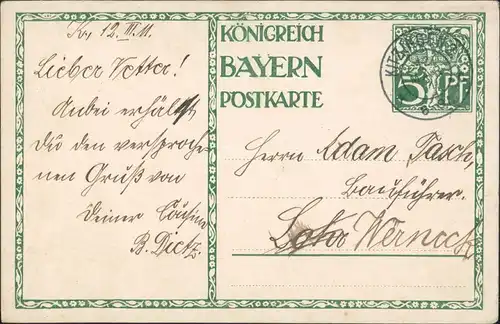 K., 12. III. 11.
Lieber Vetter!
Anbei erhälst
Du den versproche-
nen Gruß von
Deiner Cousine
B. Dietz.
KÖNIGREICH
BAYERN
POSTKARTE
KITZINGEN
5 PF
Herrn Adam Pasch,
Bauführer.
Lohr Werneck